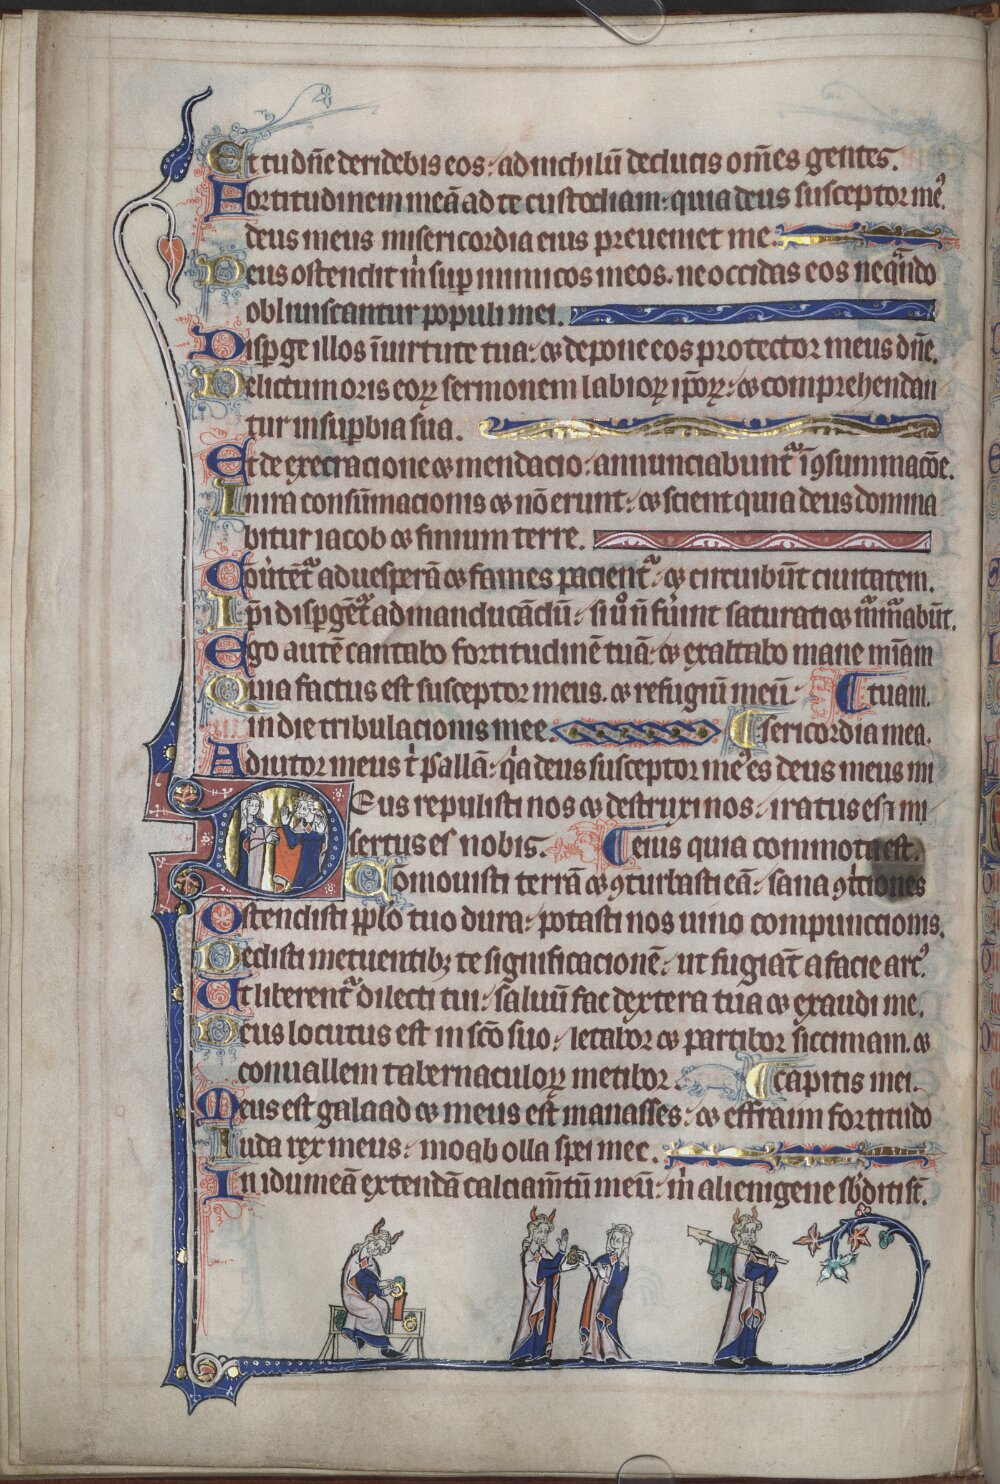 Et tu dn̄e deridebis eos: ad nichilū deduces om̄es gentes.
Fortitudinem meā ad te custodiam: quia deus susceptor meꝰ
deus meus misericordia eius preueniet me.
Deus ostendit m̓ sup inimicos meos. ne occidas eos neqn̄do
obliuiscantur populi mei.
Disp̱ge illos ī uirtute tua: ⁊ depone eos protector meus dn̄e.
Delictum oris eoꝝ sermonem labioꝝ ip̄oꝝ: ⁊ comprehendan
tur in sup̱bia sua.
Et de execracione ⁊ mendacio: annunciabunt᷑ ī ꝯsummacōe.
In ira consūmacionis ⁊ nō erunt: ⁊ scient quia deus domina
bitur iacob ⁊ finium terre.
Cōu̓tēt᷑ ad uesperā ⁊ fames pacient᷑: ⁊ circuibūt ciuitatem.
Ip̄i disp̱gēt᷑ ad manducādū: si uͦ n̄ fu̓int saturati ⁊ murmᷓabūt.
Ego autē cantabo fortitudinē tuā: ⁊ exaltabo mane mīam
Quia factus est susceptor meus. ⁊ refugiū meū: ¶ tuam.
in die tribulacionis mee. ¶ sericordia mea.
Adiutor meus t̓ psallā: q̓a deus susceptor meꝰ es deus meus mi
Deus repulisti nos ⁊ destruxi nos: iratus es ⁊ mi
sertus es nobis. ¶ eius quia commota est.
Comouisti terrā ⁊ ꝯturbasti eā: sana ꝯtͥciones
Ostendisti pp̄lo tuo dura: potasti nos uino compunccionis.
Dedisti metuentibꝫ te significacionē: ut fugiāt a facie arcꝰ
Ut liberent᷑ dilecti tui: saluū fac dextera tua ⁊ exaudi me.
Deus locutus est in sc̄o suo: letabor ⁊ partibor siccimam. ⁊
conuallem tabernaculoꝝ metibor. ¶ capitis mei.
Meus est galaad ⁊ meus est manasses: ⁊ effraim fortitudo
Iuda rex meus: moab olla spei mee.
In idumeā extendā calciam̄tū meū: m̓ alienigene sb̓diti st̄.